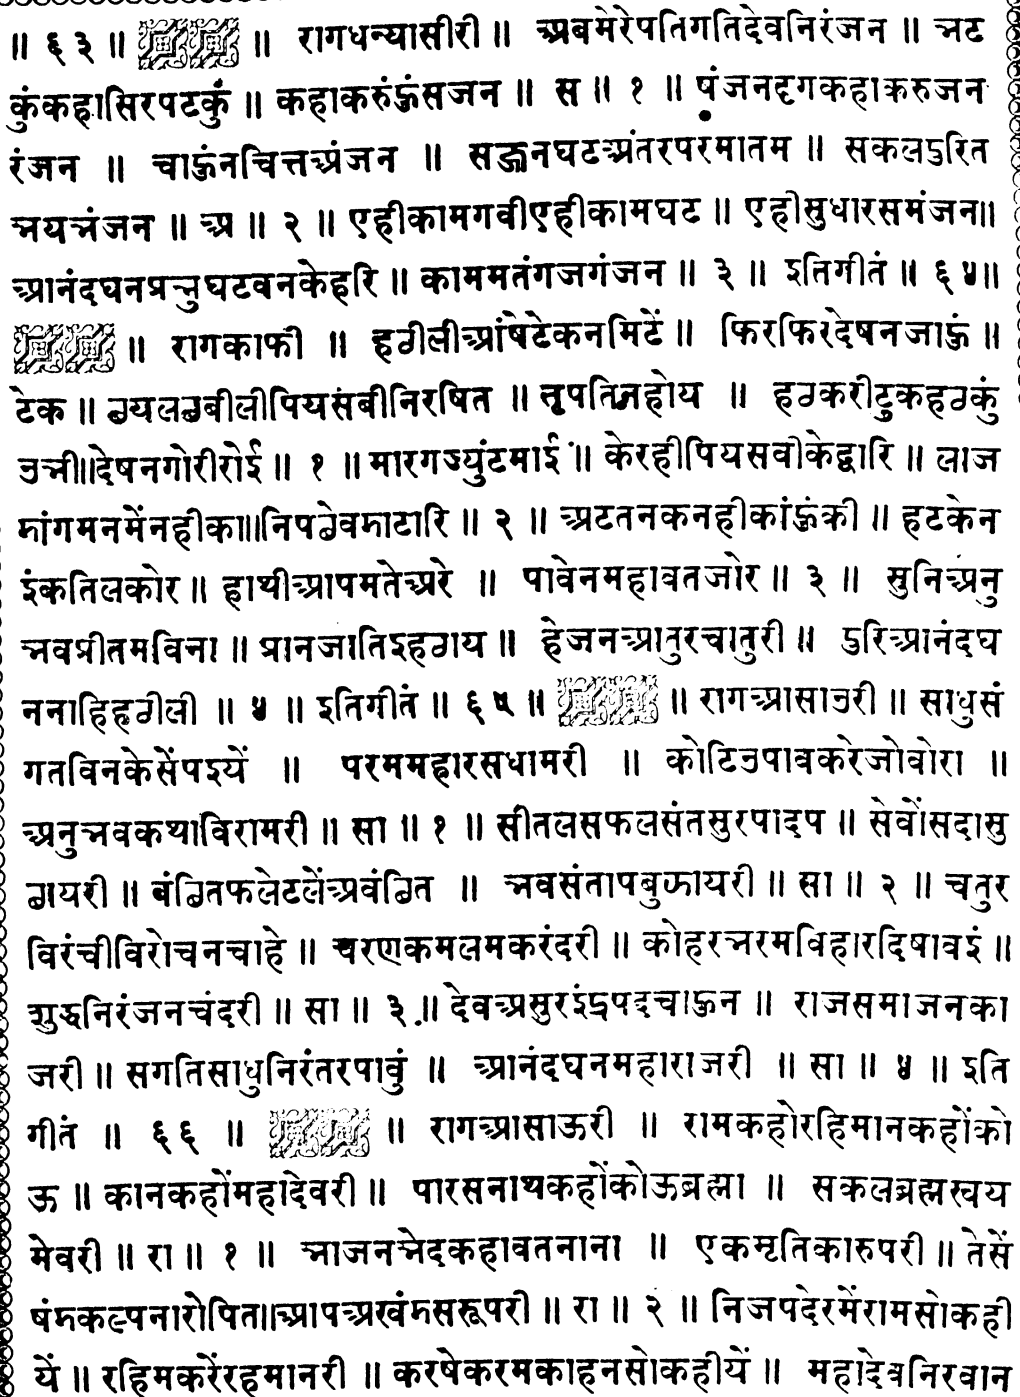 ॥ ६३ ॥ ॥ रागधन्यासीरी ॥ अबमेरेपतिगतिदेवनिरंजन ॥ भट
कुंकहासिरपटकुं ॥ कहाकरुंऊंसजन ॥ स ॥ १ ॥ षंजनदृगकहाकरुजन
रंजन ॥ चाऊंनचित्तअंजन ॥ सज्जनघटअंतरपरमातम ॥ सकलदुरित
भयभंजन ॥ अ ॥ २ ॥ एहीकामगवीएहीकामघट ॥ एहीसुधारसमंजन॥
आनंदघनप्रभुघटवनकेहरि ॥ काममतंगजगंजन ॥ ३ ॥ इतिगीतं ॥ ६४॥
॥ रागकाफी ॥ हठीलीआंषेटेकनमिटें ॥ फिरफिरदेषनजाऊं ॥
टेक ॥ छयलछबीलीपियसंबीनिरषित ॥ तृपतिनहोय ॥ हठकरीटुकहठकुं
उभी॥देषनगोरीरोई ॥ १ ॥ मारगज्युंटमाई ॥ केरहीपियसवीकेद्वारि ॥ लाज
डांगमनमेंनहीका॥निपछेवडाटारि ॥ २ ॥ अटतनकनहीकांऊंकी ॥ हटकेन
इंकतिलकोर ॥ हाथीआपमतेअरे ॥ पावेनमहावतजोर ॥ ३ ॥ सुनिअनु
भवप्रीतमविना ॥ प्रानजातिइहठाय ॥ हेजनआतुरचातुरी ॥ दुरिआनंदघ
ननाहिहठीली ॥ ४ ॥ इतिगीतं ॥ ६५ ॥ ॥ रागआसाउरी ॥ साधुसं
गतविनकेसेंपइयें ॥ परममहारसधामरी ॥ कोटिउपावकरेजोवोरा ॥
अनुभवकथाविरामरी ॥ सा ॥ १ ॥ सीतलसफलसंतसुरपादप ॥ सेवोंसदासु
छायरी ॥ वंछितफलेटलेंअवंछित ॥ भवसंतापबुझायरी ॥ सा ॥ २ ॥ चतुर
विरंचीविरोचनचाहे ॥ चरणकमलमकरंदरी ॥ कोहरभरमविहारदिषावइं ॥
शुद्धनिरंजनचंदरी ॥ सा ॥ ३ ॥ देवअसुरइंद्रपदचाऊन ॥ राजसमाजनका
जरी ॥ सगतिसाधुनिरंतरपावुं ॥ आनंदघनमहाराजरी ॥ सा ॥ ४ ॥ इति
गीतं ॥ ६६ ॥ ॥ रागआसाऊरी ॥ रामकहोरहिमानकहोंको
ऊ ॥ कानकहोंमहादेवरी ॥ पारसनाथकहोंकोऊब्रह्मा ॥ सकलब्रह्मस्वय
मेवरी ॥ रा ॥ १ ॥ भाजनभेदकहावतनाना ॥ एकमृतिकारुपरी ॥ तेसें
षंडकल्पनारोपित॥आपअखंडसरूपरी ॥ रा ॥ २ ॥ निजपदेरमेंरामसोकही
यें ॥ रहिमकरेंरहमानरी ॥ करषेकरमकाहनसोकहीयें ॥ महादेवनिरवान